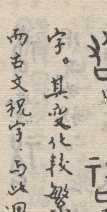 字。其变化较繁
而古文祝字与此迥